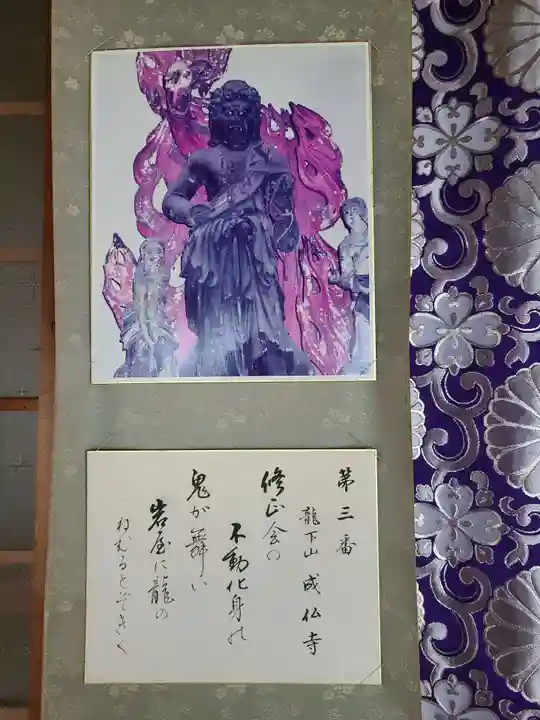 第三番
龍下山 成仏寺
修正会の
不動化身の
鬼が舞い
岩屋に龍の
ねむるとぞきく